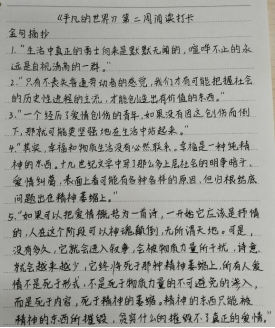 《平凡的世界》第二周阅读打卡
金句摘抄
1."生活中真正的勇士向来是默默无闻的，喧哗不止的永
远是自视清高的一群。"
2."只有不丧失普通劳动者的感觉，我们才有可能把握社会
的历史进程的主流，才能创造出有价值的东西。"
3."一个经历了爱情创伤的青年，如果没有因这创伤而倒
下，那就可能更坚强地在生活中站起来。"
4."其实，幸福和物质生活没有必然联系。幸福是一种纯精
神的东西。十九世纪文学中写了那么多上层社会的明争暗斗、
爱情纠葛，表面上看可能有各种各样的原因，但归根结底
问题出在精神萎缩上。"
5."如果可以把爱情概括为一首诗，一开始它应该是抒情
的，人在这个阶段可以神魂颠倒，无所谓天地。可是，
没有多久，它就会进入叙事，会被物质力量所干扰，诗意
就会越来越少，它终将死于那种精神萎缩上，所有人爱
情不是死于形式，不是死于物质力量的不可避免的渗入，
而是死于内容，死于精神的萎缩。精神的东西只能被
精神的东西所摧毁，贫穷什么的摧毁不了真正的爱情。